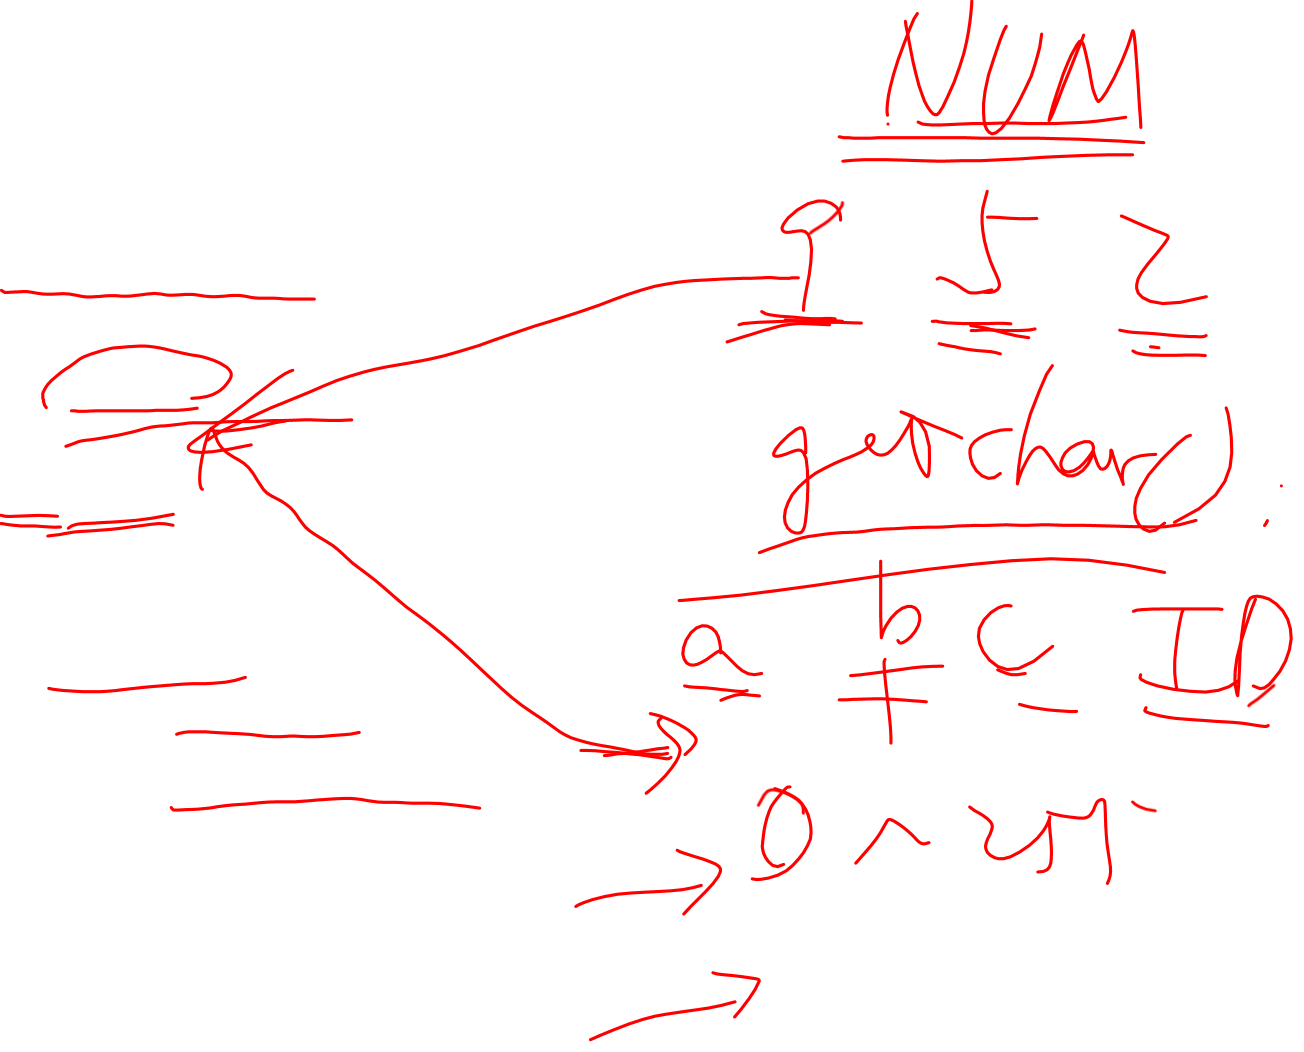 NUM
9 5 2
getchar()
a b c ID
0 ~ 255